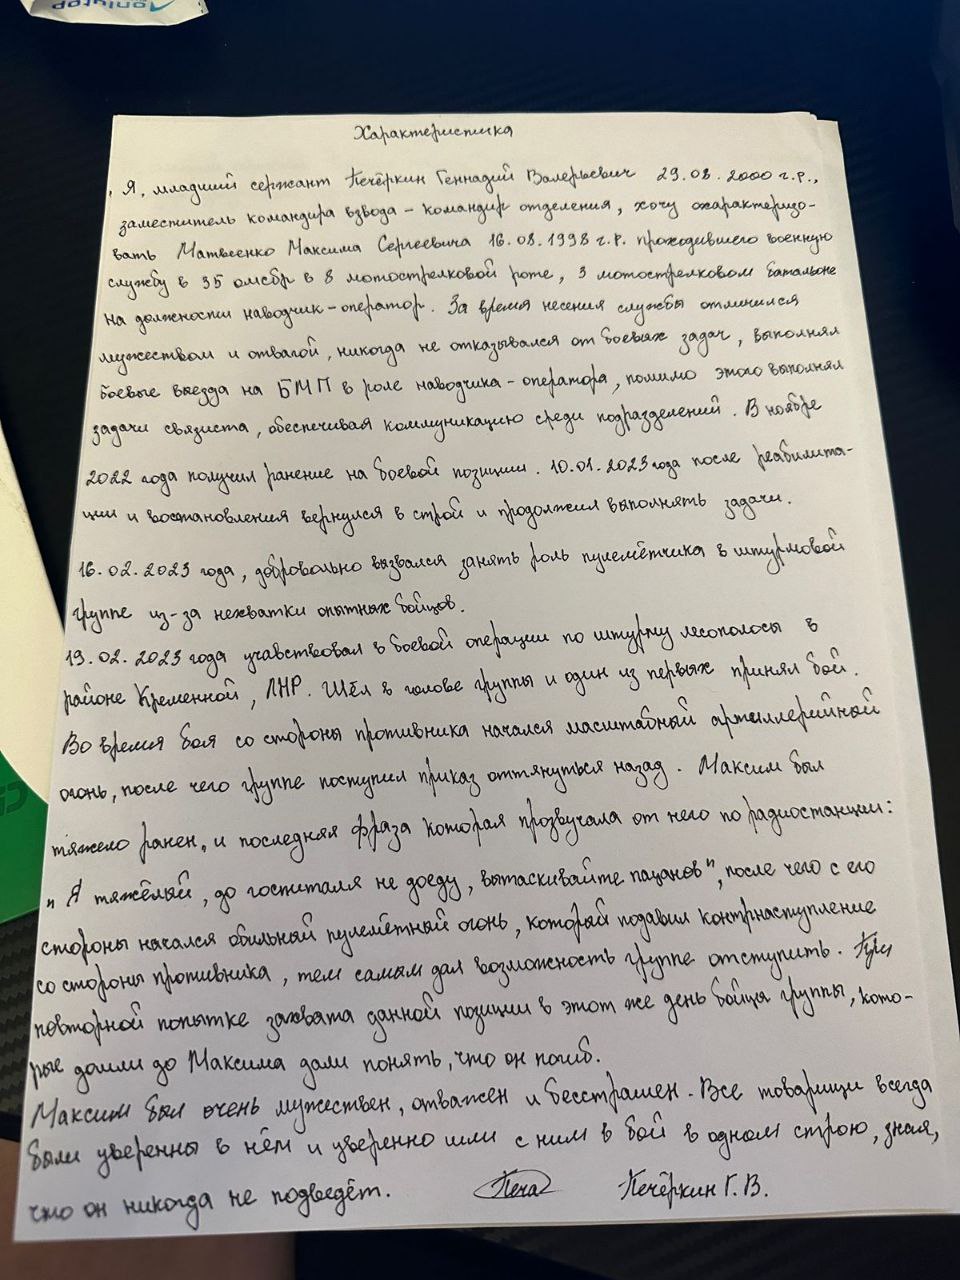 Характеристика
Я, младший сержант Печёркин Геннадий Валерьевич 29.08.2000 г.р.,
заместитель командира взвода - командир отделения, хочу охарактеризо-
вать Матвеенко Максима Сергеевича 16.08.1998 г.р. проходившего военную
службу в 35 омсбр в 8 мотострелковой роте, 3 мотострелковом батальоне
на должности наводчик-оператор. За время несения службы отличился
мужеством и отвагой, никогда не отказывался от боевых задач, выполнял
боевые выезда на БМП в роле наводчика-оператора, помимо этого выполнял
задачи связиста, обеспечивая коммуникацию среди подразделений. В ноябре
2022 года получил ранение на боевой позиции. 10.01.2023 года после реабилита-
ции и востановления вернулся в строй и продолжил выполнять задачи.
16.02.2023 года, добровольно вызвался занять роль пулемётчика в штурмовой
группе из-за нехватки опытных бойцов.
19.02.2023 года учавствовал в боевой операции по штурму лесополосы в
районе Кременной, ЛНР. Шёл в голове группы и один из первых принял бой.
Во время боя со стороны противника начался масштабный артиллерийный
огонь, после чего группе поступил приказ оттянуться назад. Максим был
тяжело ранен, и последняя фраза которая прозвучала от него по радиостанции:
"Я тяжёлый, до госпиталя не доеду, вытаскивайте пацанов", после чего с его
стороны начался обильный пулемётный огонь, который подавил контрнаступление
со стороны противника, тем самым дал возможность группе отступить. При
повторной попытке захвата данной позиции в этот же день бойцы группы, кото-
рые дошли до Максима дали понять, что он погиб.
Максим был очень мужествен, отважен и бесстрашен. Все товарищи всегда
были уверенны в нём и уверенно шли с ним в бой в одном строю, зная,
что он никогда не подведёт. Печ Печёркин Г.В.